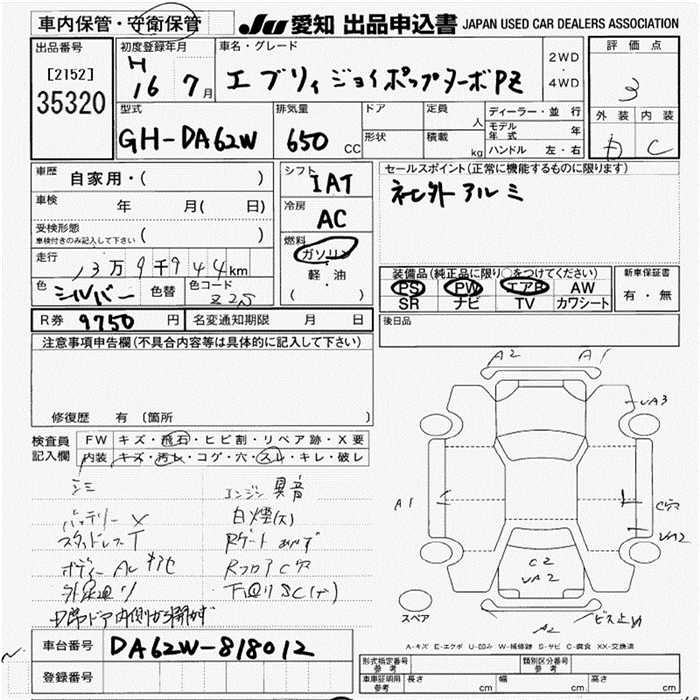 車内保管・守衛保管
JU 愛知 出品申込書 JAPAN USED CAR DEALERS ASSOCIATION
出品番号
[2152]
35320
初度登録年月
H 16 7月
車名・グレード
エブリィジョイポップターボPZ
2WD
・
4WD
評価点
3
外装 内装
D C
型式
GH-DA62W
排気量
650 CC
ドア
形状
定員 人
積載 kg
ディーラー・並行
モデル年式 年
ハンドル 左・右
車歴 自家用・( )
車検 年 月( 日)
受検形態
車検付きのみ記入して下さい ( )
走行 13万9千944km
色 シルバー 色替 色コード Z2S
シフト IAT
冷房 AC
燃料
ガソリン
軽・油
( )
セールスポイント(正常に機能するものに限ります)
社外アルミ
装備品(純正品に限り○をつけてください)
PS PW エアB AW
SR ナビ TV カワシート
新車保証書
有・無
R券 9750 円 名変通知期限 月 日
後日品
注意事項申告欄(不具合内容等は具体的に記入して下さい)
修復歴 有 (箇所
検査員
記入欄
FW キズ・飛石・ヒビ割・リペア跡・X要
内装 キズ・汚レ・コゲ・穴・スレ・キレ・破レ
シミ
エンジン異音
バッテリーX
白煙(大)
スタッドレスT
Rゲート
ボディーAL キセ
RフロアC穴
下回りSC(
ドア内側から開かず
A2 A1
UA3
A1
C穴
UA2
C2
UA2
A2
ビス止め
スペア
A-キズ E-エクボ U-凹み W-補修跡 S-サビ C-腐食 XX-交換済
車台番号 DA62W-818012
登録番号
形式指定番号
参考
類別区分番号
参考
車庫証明用
参考
長さ cm 幅 cm 高さ cm